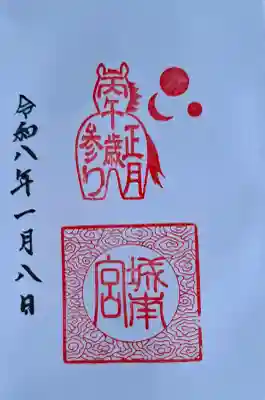 丙午歳
正月
参り
城南宮
令和八年一月八日